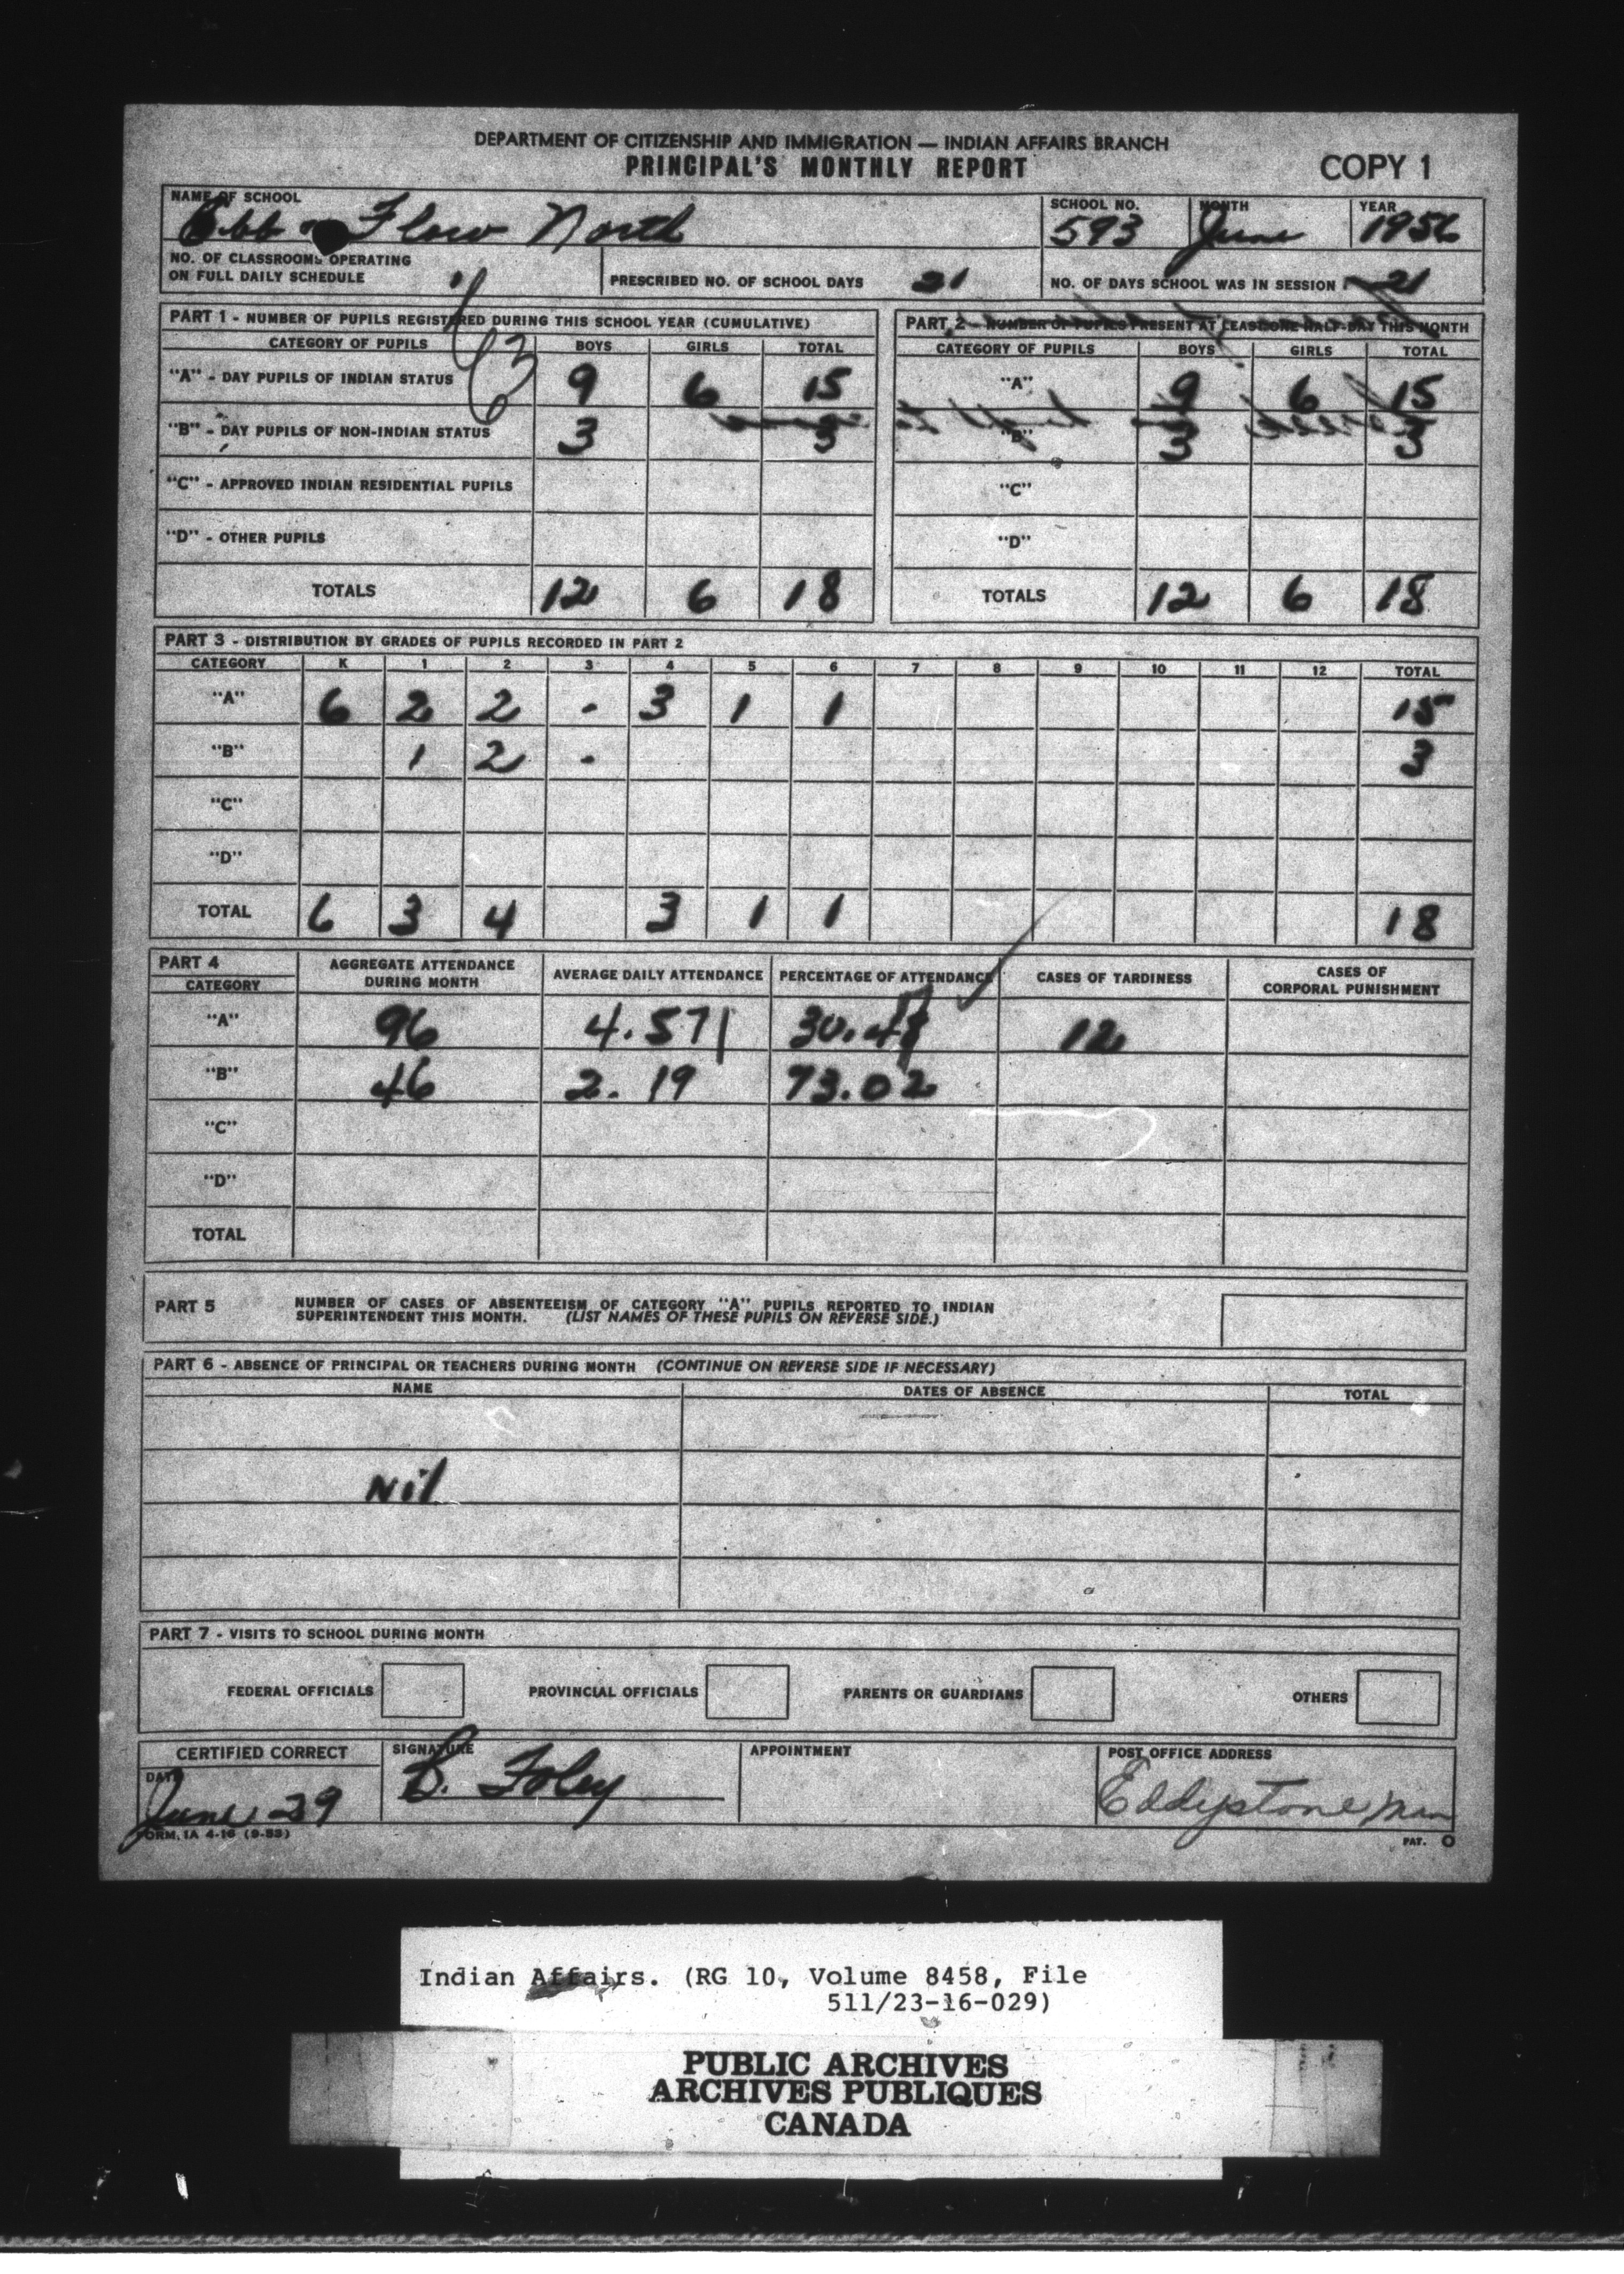 DEPARTMENT OF CITIZENSHIP AND IMMIGRATION — INDIAN AFFAIRS BRANCH
PRINCIPAL'S MONTHLY REPORT COPY 1
NAME OF SCHOOL SCHOOL NO. MONTH YEAR
Ebb Flow North 593 June 1956
NO. OF CLASSROOMS OPERATING
ON FULL DAILY SCHEDULE 1 PRESCRIBED NO. OF SCHOOL DAYS 21 NO. OF DAYS SCHOOL WAS IN SESSION 21
PART 1 - NUMBER OF PUPILS REGISTERED DURING THIS SCHOOL YEAR (CUMULATIVE)
CATEGORY OF PUPILS BOYS GIRLS TOTAL
"A" - DAY PUPILS OF INDIAN STATUS 9 6 15
"B" - DAY PUPILS OF NON-INDIAN STATUS 3 3
"C" - APPROVED INDIAN RESIDENTIAL PUPILS
"D" - OTHER PUPILS
TOTALS 12 6 18
PART 2 - NUMBER OF PUPILS PRESENT AT LEAST ONE HALF-DAY THIS MONTH
CATEGORY OF PUPILS BOYS GIRLS TOTAL
"A" 9 6 15
"B" 3 3
"C"
"D"
TOTALS 12 6 18
PART 3 - DISTRIBUTION BY GRADES OF PUPILS RECORDED IN PART 2
CATEGORY K 1 2 3 4 5 6 7 8 9 10 11 12 TOTAL
"A" 6 2 2 - 3 1 1 15
"B" 1 2 - 3
"C"
"D"
TOTAL 6 3 4 3 1 1 18
PART 4
CATEGORY AGGREGATE ATTENDANCE DURING MONTH AVERAGE DAILY ATTENDANCE PERCENTAGE OF ATTENDANCE CASES OF TARDINESS CASES OF CORPORAL PUNISHMENT
"A" 96 4.571 30.47 12
"B" 46 2.19 73.02
"C"
"D"
TOTAL
PART 5 NUMBER OF CASES OF ABSENTEEISM OF CATEGORY "A" PUPILS REPORTED TO INDIAN
SUPERINTENDENT THIS MONTH. (LIST NAMES OF THESE PUPILS ON REVERSE SIDE.)
PART 6 - ABSENCE OF PRINCIPAL OR TEACHERS DURING MONTH (CONTINUE ON REVERSE SIDE IF NECESSARY)
NAME DATES OF ABSENCE TOTAL
Nil
PART 7 - VISITS TO SCHOOL DURING MONTH
FEDERAL OFFICIALS PROVINCIAL OFFICIALS PARENTS OR GUARDIANS OTHERS
CERTIFIED CORRECT SIGNATURE APPOINTMENT POST OFFICE ADDRESS
DATE
June 29 B. Foley Eddystone Man
FORM. IA 4-16 (9-53) PAT. O
Indian Affairs. (RG 10, Volume 8458, File
511/23-16-029)
PUBLIC ARCHIVES
ARCHIVES PUBLIQUES
CANADA